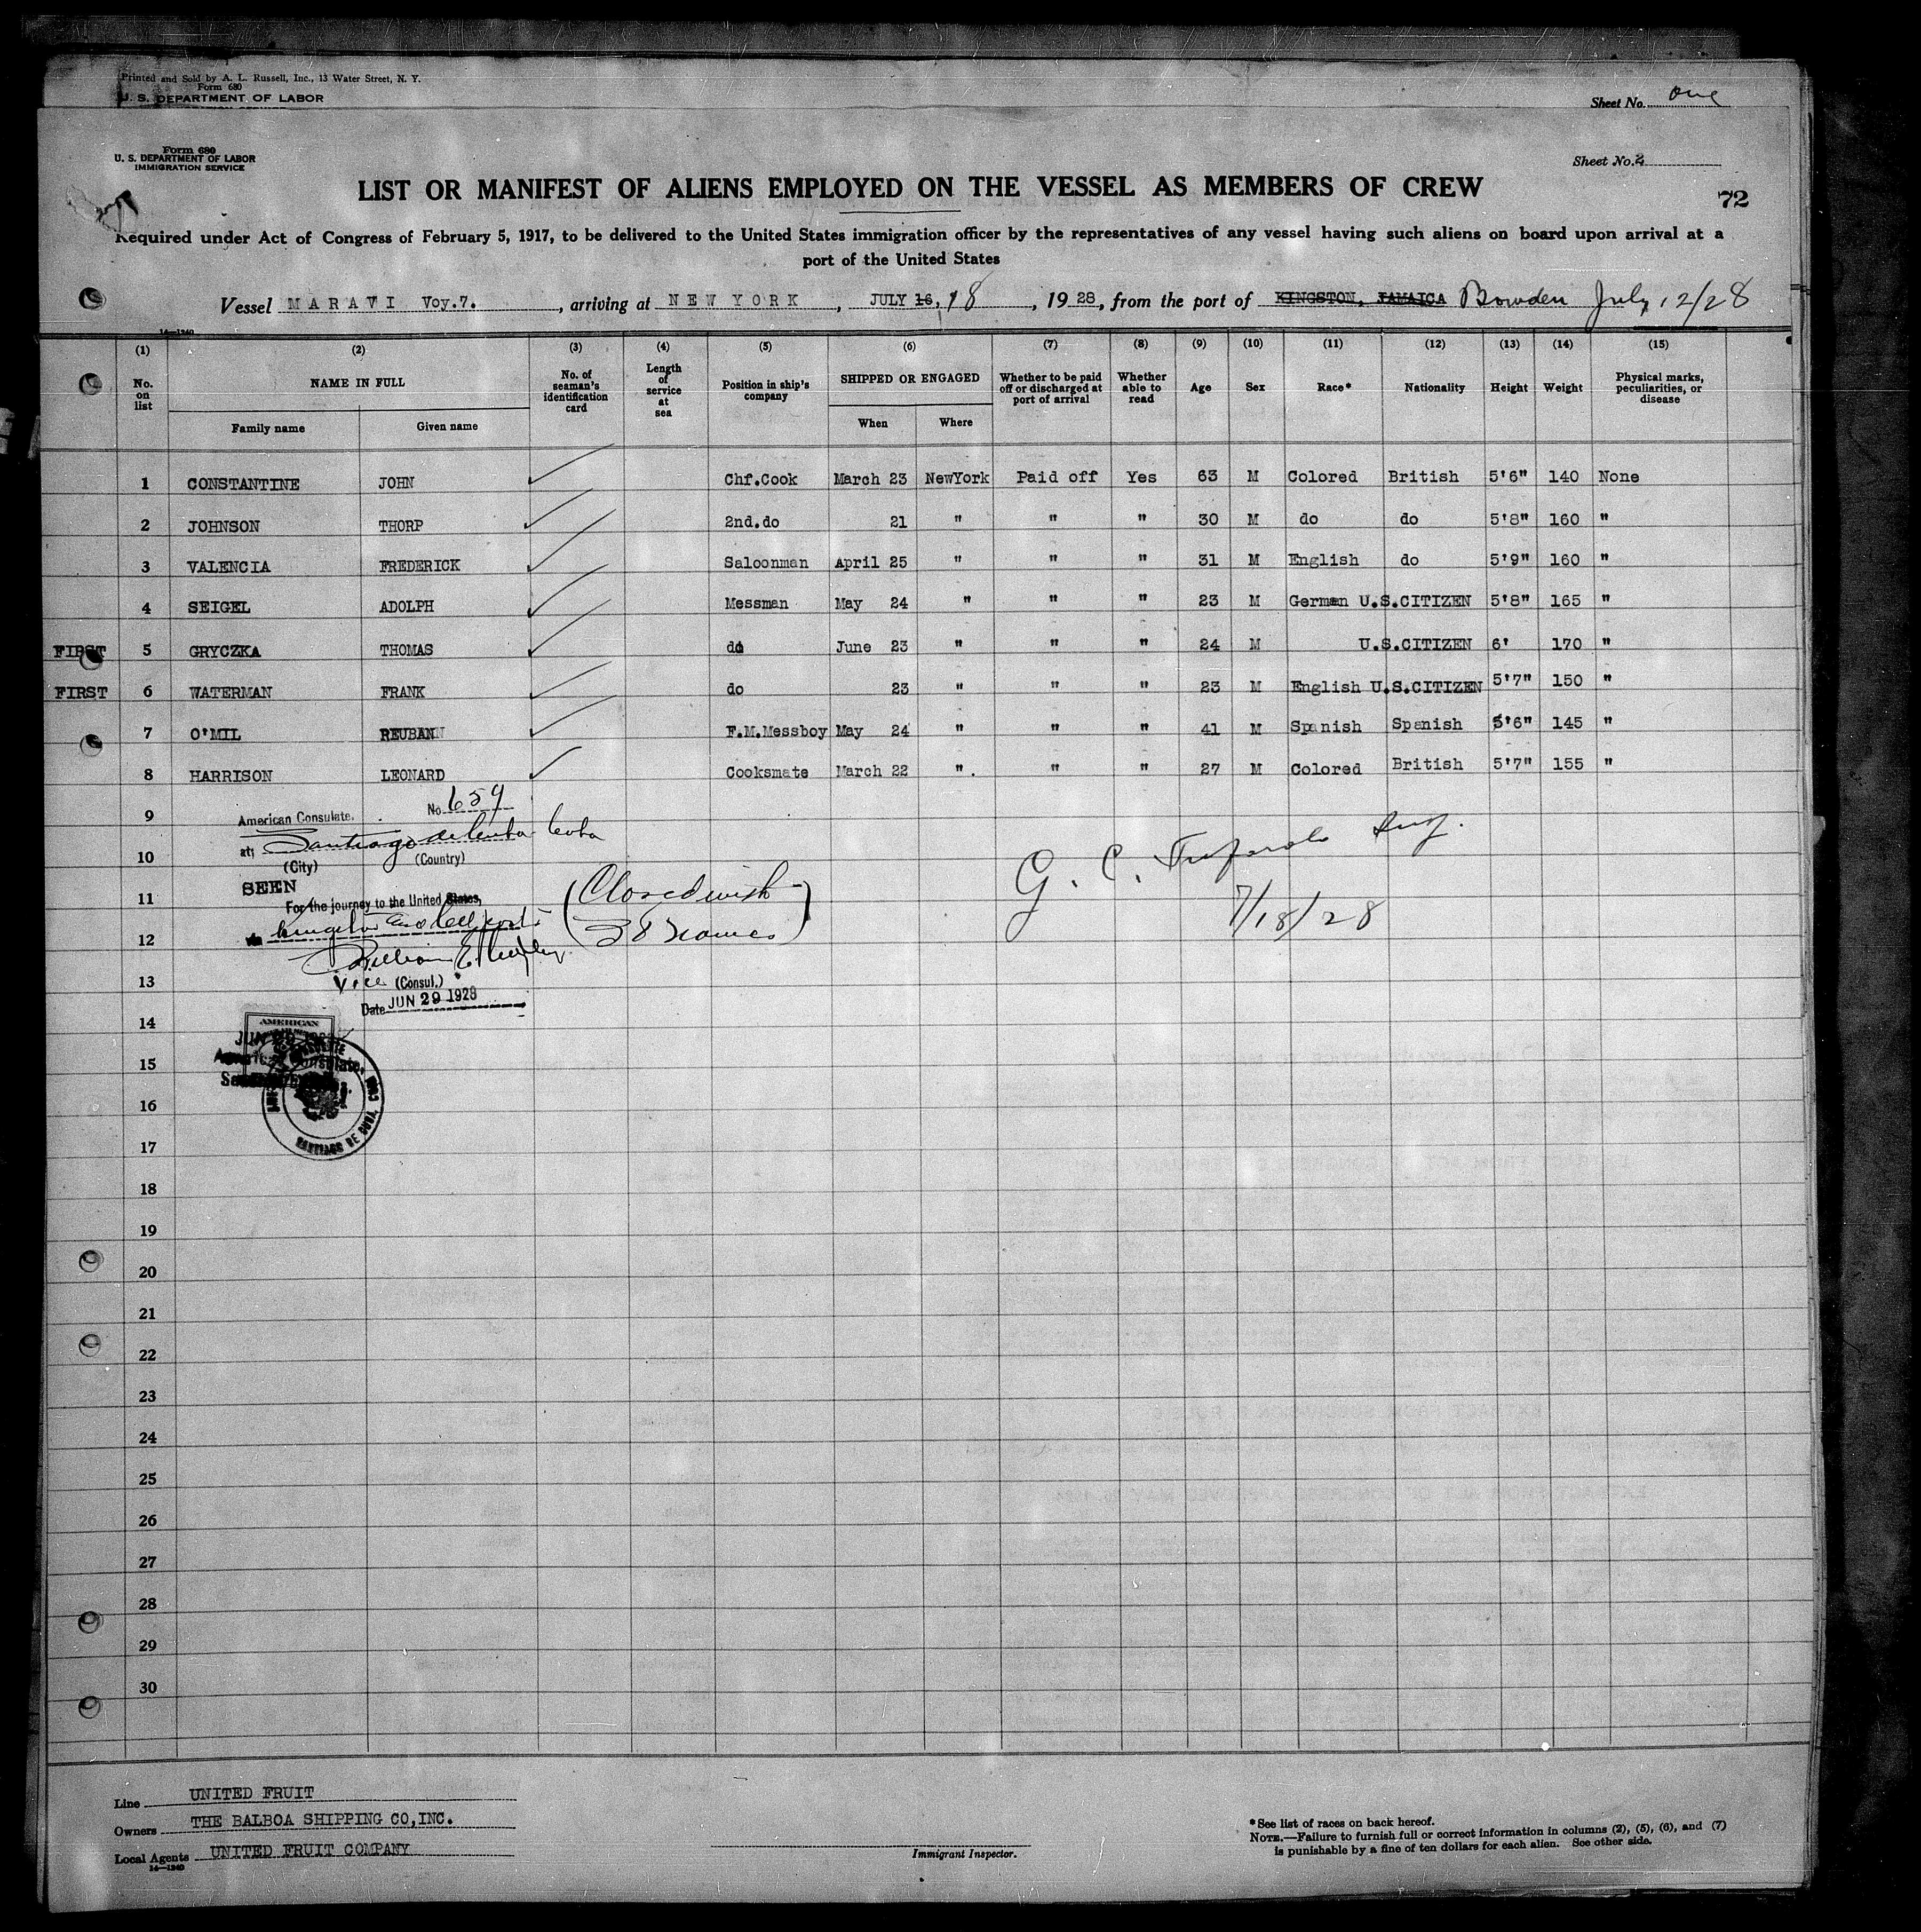 Printed and Sold by A. L. Russell, Inc., 13 Water Street, N. Y.
Form 680
U. S. DEPARTMENT OF LABOR
Sheet No. one
Form 680
U. S. DEPARTMENT OF LABOR
IMMIGRATION SERVICE
Sheet No. 2
LIST OR MANIFEST OF ALIENS EMPLOYED ON THE VESSEL AS MEMBERS OF CREW
72
Required under Act of Congress of February 5, 1917, to be delivered to the United States immigration officer by the representatives of any vessel having such aliens on board upon arrival at a
port of the United States
Vessel MARAVI Voy.7. , arriving at NEW YORK , JULY 16, 18 , 19 28, from the port of KINGSTON, JAMAICA Bowden July 12/28
14—1240
(1) (2) (3) (4) (5) (6) (7) (8) (9) (10) (11) (12) (13) (14) (15)
No. on list NAME IN FULL No. of seaman's identification card Length of service at sea Position in ship's company SHIPPED OR ENGAGED Whether to be paid off or discharged at port of arrival Whether able to read Age Sex Race* Nationality Height Weight Physical marks, peculiarities, or disease
Family name Given name When Where
1 CONSTANTINE JOHN Chf.Cook March 23 NewYork Paid off Yes 63 M Colored British 5'6" 140 None
2 JOHNSON THORP 2nd.do 21 " " " 30 M do do 5'8" 160 "
3 VALENCIA FREDERICK Saloonman April 25 " " " 31 M English do 5'9" 160 "
4 SEIGEL ADOLPH Messman May 24 " " " 23 M German U.S.CITIZEN 5'8" 165 "
FIRST 5 GRYCZKA THOMAS do June 23 " " " 24 M U.S.CITIZEN 6' 170 "
FIRST 6 WATERMAN FRANK do 23 " " " 23 M English U.S.CITIZEN 5'7" 150 "
7 O'MIL REUBAN F.M.Messboy May 24 " " " 41 M Spanish Spanish 5'6" 145 "
8 HARRISON LEONARD Cooksmate March 22 " " " 27 M Colored British 5'7" 155 "
9
American Consulate. No. 659
at; Santiago de Cuba Cuba
10
(City) (Country)
SEEN
11
For the journey to the United States,
(Closed with
38 names)
via Kingston and all ports
12
William E.
13
Vice (Consul.)
Date JUN 29 1928
G. C. Insp.
7/18/28
14
AMERICAN
15
American Consulate,
16
SANTIAGO DE CUBA, CUBA
17
18
19
20
21
22
23
24
25
26
27
28
29
30
Line UNITED FRUIT
Owners THE BALBOA SHIPPING CO,INC.
Local Agents UNITED FRUIT COMPANY
14—1240
Immigrant Inspector.
*See list of races on back hereof.
NOTE.—Failure to furnish full or correct information in columns (2), (5), (6), and (7)
is punishable by a fine of ten dollars for each alien. See other side.